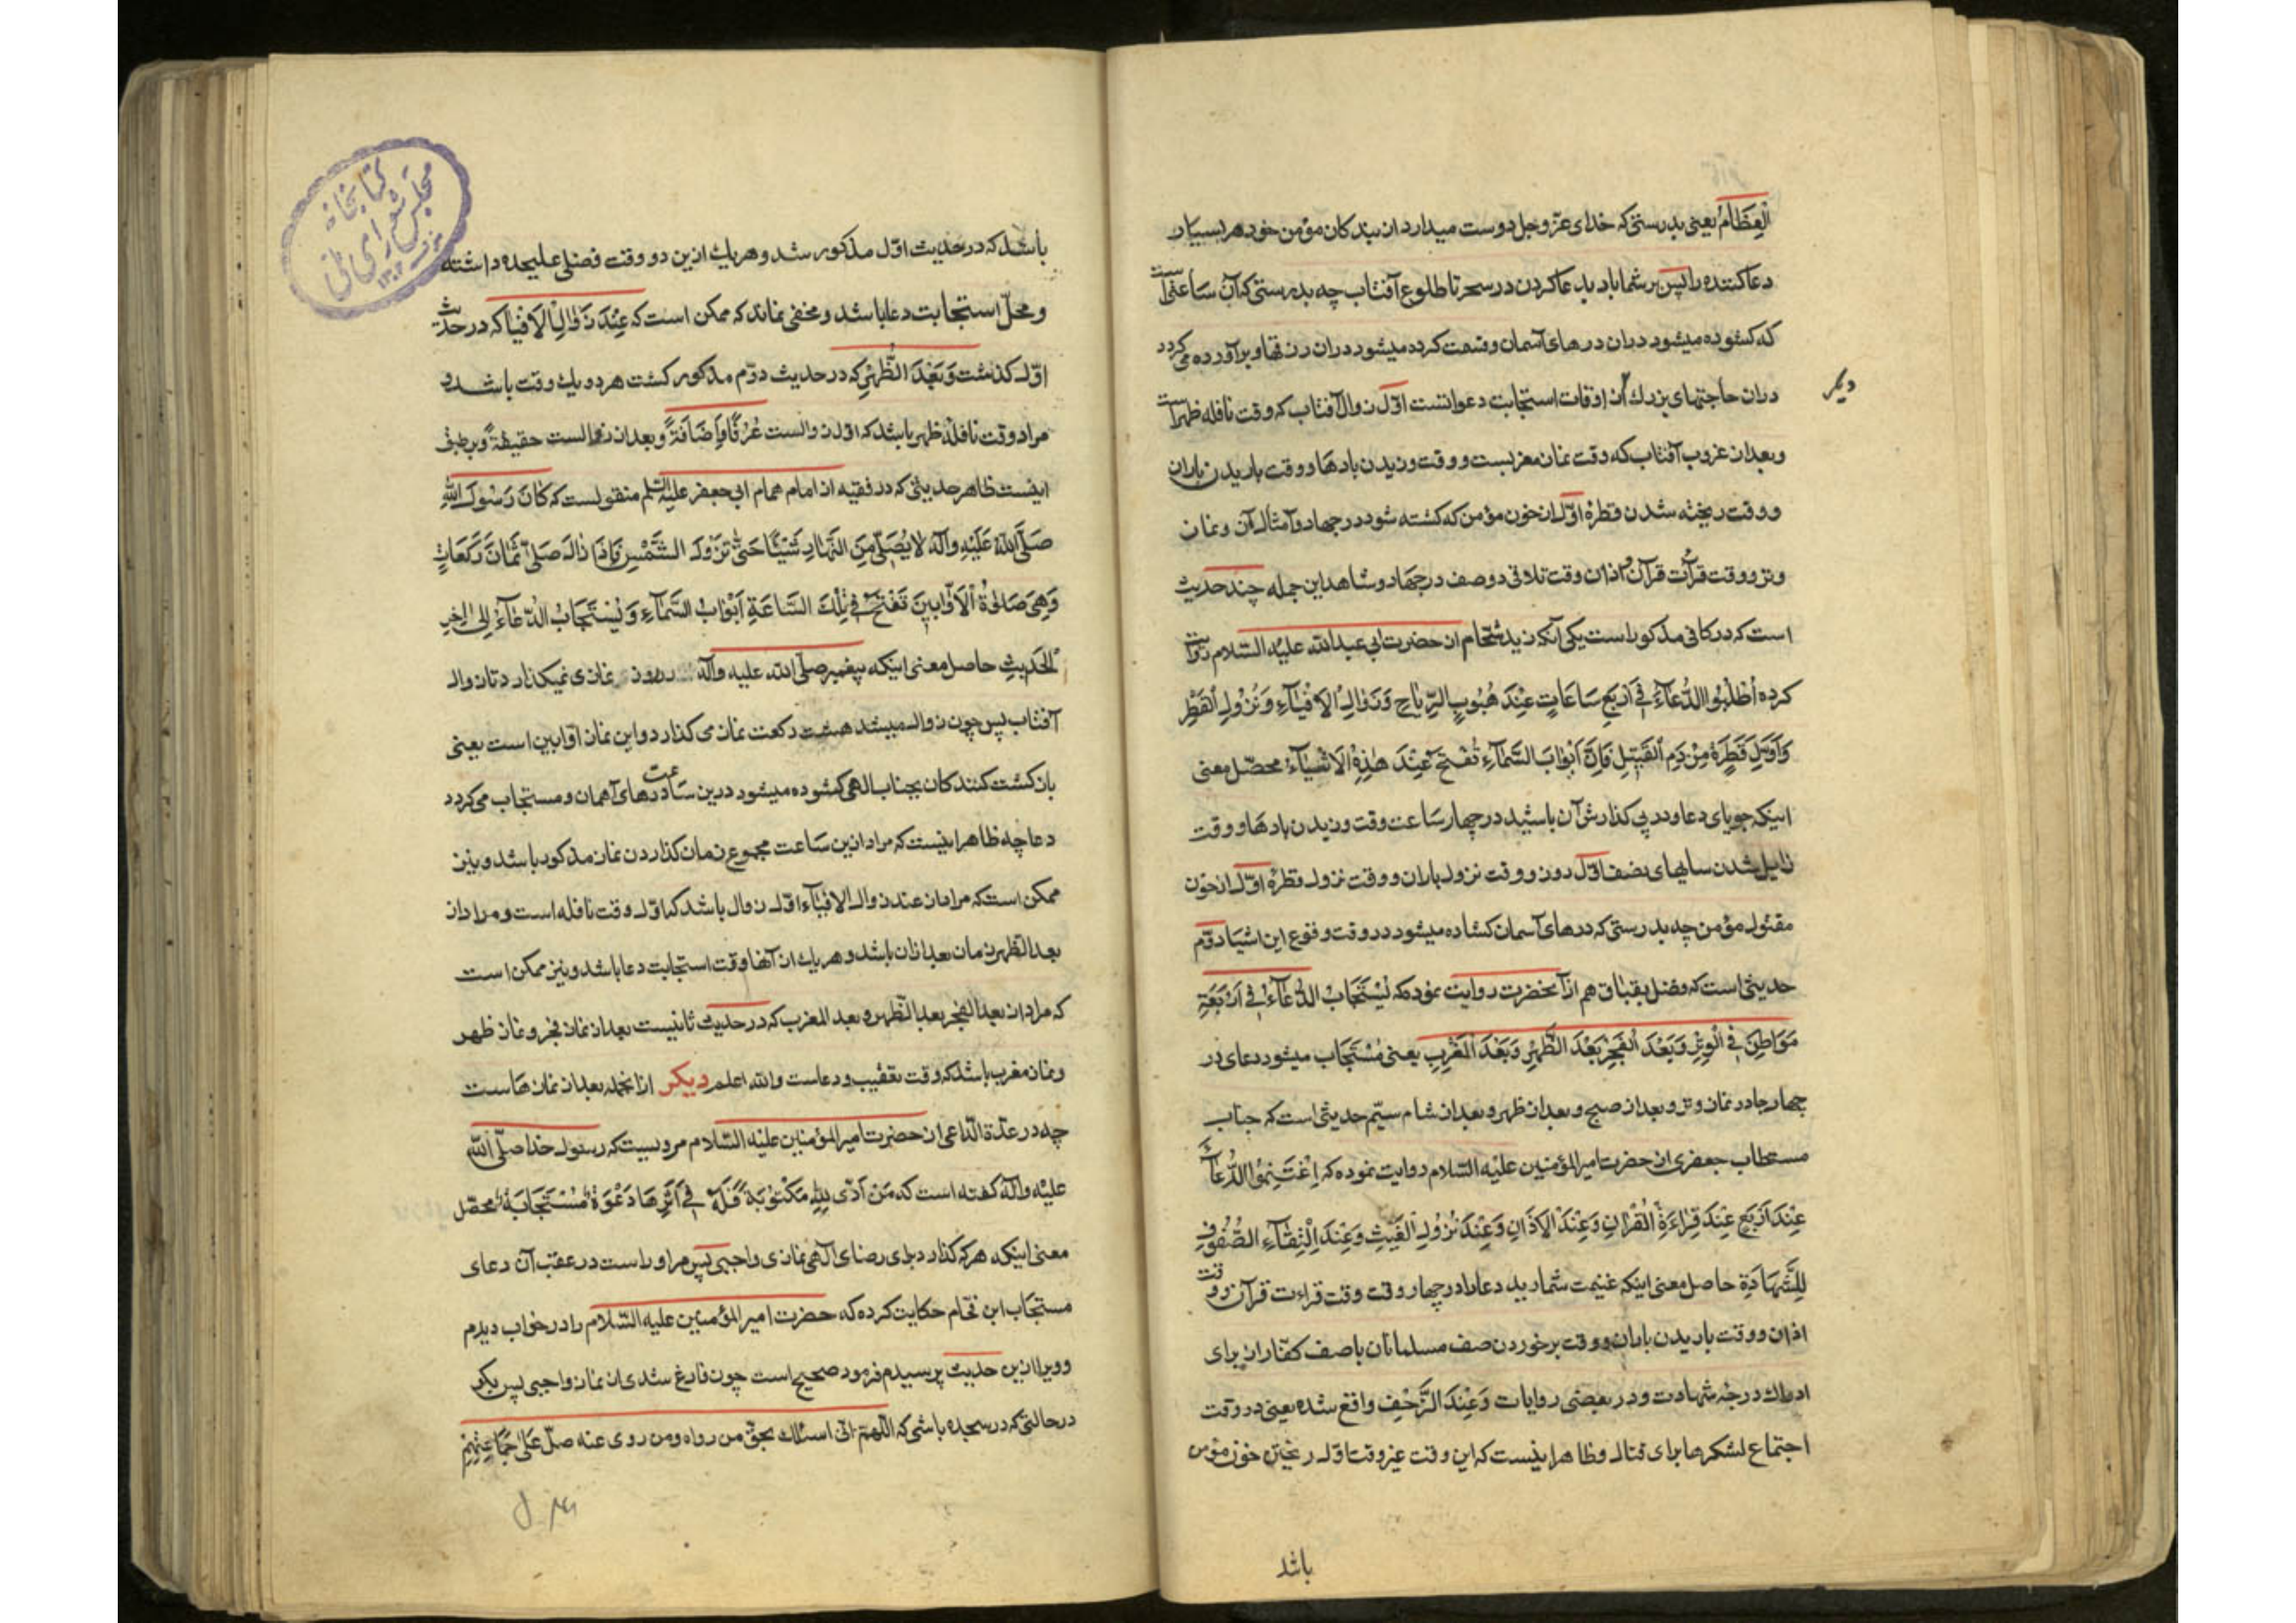 الْعِظَامُ یعنی بدرستی که خدای عزّ وجل دوست میدارد از بندکان مؤمن خود هر بسیار
دعا کننده را پس بر شما باد بدعا کردن در سحر تا طلوع آفتاب چه بدرستی که آن ساعتی است
که کشوده میشود دران درهای آسمان وقسمت کرده میشود دران رزقها وبرآورده می کردد
دران حاجتهای بزرك از اوقات استجابت دعوات اوّل زوال آفتاب که وقت نافله ظهر است
دیگر
وبعد از غروب آفتاب که وقت نماز مغربست ووقت وزیدن بادها ووقت باریدن باران
ووقت ریخته شدن قطرهٔ اوّل از خون مؤمن که کشته شود در جهاد وامثال آن ونماز
وتر ووقت قرآئت قرآن واذان وقت تلاقی دو صف در جهاد وشاهد این جمله چند حدیث
است که در کافی مذکور است یکی آنکه زید شحّام از حضرت ابی عبدالله علیه السّلام روایت
کرده اُطْلُبُوا الدُّعَآءَ فِی اَرْبَعِ سَاعَاتٍ عِنْدَ هُبُوبِ الرِّیَاحِ وَزَوَالِ الْاَفْیَآءِ وَنُزُولِ الْقَطْرِ
وَاَوَّلِ قَطْرَةٍ مِنْ دَمِ الْقَتِیلِ فَاِنَّ اَبْوَابَ السَّمَآءِ تُفْتَحُ عِنْدَ هٰذِهِ الْاَشْیَآءِ محصّل معنی
اینکه جویای دعا ودر پی کذارش آن باشید در چهار ساعت وقت وزیدن بادها ووقت
زایل شدن سایهای نصف اوّل روز ووقت نزول باران ووقت نزول قطرهٔ اوّل از خون
مقتول مؤمن چه بدرستی که درهای آسمان کشاده میشود در وقت وقوع این اشیا دوّم
حدیثی است که فضل بقباق هم از آنحضرت روایت نموده که یُسْتَجَابُ الدُّعَآءُ فِی اَرْبَعَةِ
مَوَاطِنَ فِی الْوِتْرِ وَبَعْدَ الْفَجْرِ وَبَعْدَ الظُّهْرِ وَبَعْدَ الْمَغْرِبِ یعنی مُسْتَجَاب میشود دعای در
چهار جا در نماز وتر وبعد از صبح وبعد از ظهر وبعد از شام سیّم حدیثی است که جناب
مستطاب جعفری از حضرت امیرالمؤمنین علیه السّلام روایت نموده که اِغْتَنِمُوا الدُّعَآءَ
عِنْدَ اَرْبَعٍ عِنْدَ قِرَاءَةِ الْقُرْاٰنِ وَعِنْدَ الْاَذَانِ وَعِنْدَ نُزُولِ الْغَیْثِ وَعِنْدَ الْتِقَآءِ الصَّفَّیْنِ
لِلشَّهَادَةِ حاصل معنی اینکه غنیمت شمارید دعا را در چهار وقت وقت قراءت قرآن ووقت
اذان ووقت باریدن باران ووقت برخوردن صف مسلمانان با صف کفّار از برای
ادراك درجهٔ شهادت ودر بعضی روایات وَعِنْدَ الزَّحْفِ واقع شده یعنی در وقت
اجتماع لشکرها برای قتال وظاهر اینست که این وقت غیر وقت اوّل ریختن خون مؤمن
باشد
کتابخانه
مجلس شورای ملی
باشد که در حدیث اوّل مذکور شد وهر یك ازین دو وقت فضلی علیحده داشته
ومحلّ استجابت دعا باشد ومخفی نماند که ممکن است که عِنْدَ زَوَالِ الْاَفْیَا که در حدیث
اوّل کذشت وَبَعْدَ الظُّهْرِ که در حدیث دوّم مذکور کشت هر دو یك وقت باشد و
مراد وقت نافلهٔ ظهر باشد که اوّل زوالست عُرْفًا وَاِضَافَةً وبعد از زوالست حقیقةً وبر طبق
اینست ظاهر حدیثی که در فقیه از امام همام ابی جعفر علیه السلم منقولست که کَانَ رَسُولُ اللّٰهِ
صَلَّی اللّٰهُ عَلَیْهِ وَاٰلِهِ لَا یُصَلِّی مِنَ النَّهَارِ شَیْئًا حَتّٰی تَزُولَ الشَّمْسُ فَاِذَا زَالَ صَلّٰی ثَمَانَ رَکَعَاتٍ
وَهِیَ صَلٰوةُ الْاَوَّابِینَ تُفْتَحُ فِی تِلْكَ السَّاعَةِ اَبْوَابُ السَّمَآءِ وَیُسْتَجَابُ الدُّعَآءُ اِلٰی اٰخِرِ
الْحَدِیثِ حاصل معنی اینکه پیغمبر صلّی الله علیه وآله در روز نمازی نمیکذارد تا زوال
آفتاب پس چون زوال میشد هشت رکعت نماز می کذارد واین نماز اوّابین است یعنی
بازکشت کنندکان بجناب الهی کشوده میشود درین ساعت درهای آسمان ومستجاب می کردد
دعا چه ظاهر اینست که مراد ازین ساعت مجموع زمان کذاردن نماز مذکور باشد ونیز
ممکن است که مراد از عند زوال الافیآء اوّل زوال باشد که اوّل وقت نافله است ومراد از
بعد الظهر زمان بعد ازان باشد وهر یك از آنها وقت استجابت دعا باشد ونیز ممکن است
که مراد از بعد الفجر وبعد الظّهر وبعد المغرب که در حدیث ثانیست بعد از نماز فجر ونماز ظهر
ونماز مغرب باشد که وقت تعقیب ودعاست والله اعلم دیکر ازانجمله بعد از نمازهاست
چه در عدّة الدّاعی از حضرت امیرالمؤمنین علیه السّلام مرویست که رسول خدا صلّی الله
علیه وآله کفته است که مَنْ اَدّٰی لِلّٰهِ مَکْتُوبَةً فَلَهُ فِی اَثَرِهَا دَعْوَةٌ مُسْتَجَابَةٌ محصّل
معنی اینکه هر که کذارد برای رضای الهی نمازی واجبی پس مر او راست در عقب آن دعای
مستجاب ابن فحّام حکایت کرده که حضرت امیرالمؤمنین علیه السّلام را در خواب دیدم
وویرا ازین حدیث پرسیدم فرمود صحیح است چون فارغ شدی از نماز واجبی پس بکو
درحالتی که در سجده باشی که اللّهمّ انّی اسئلك بحقّ من رواه ومن روی عنه صلّ علی جَمَاعَتِهِمْ